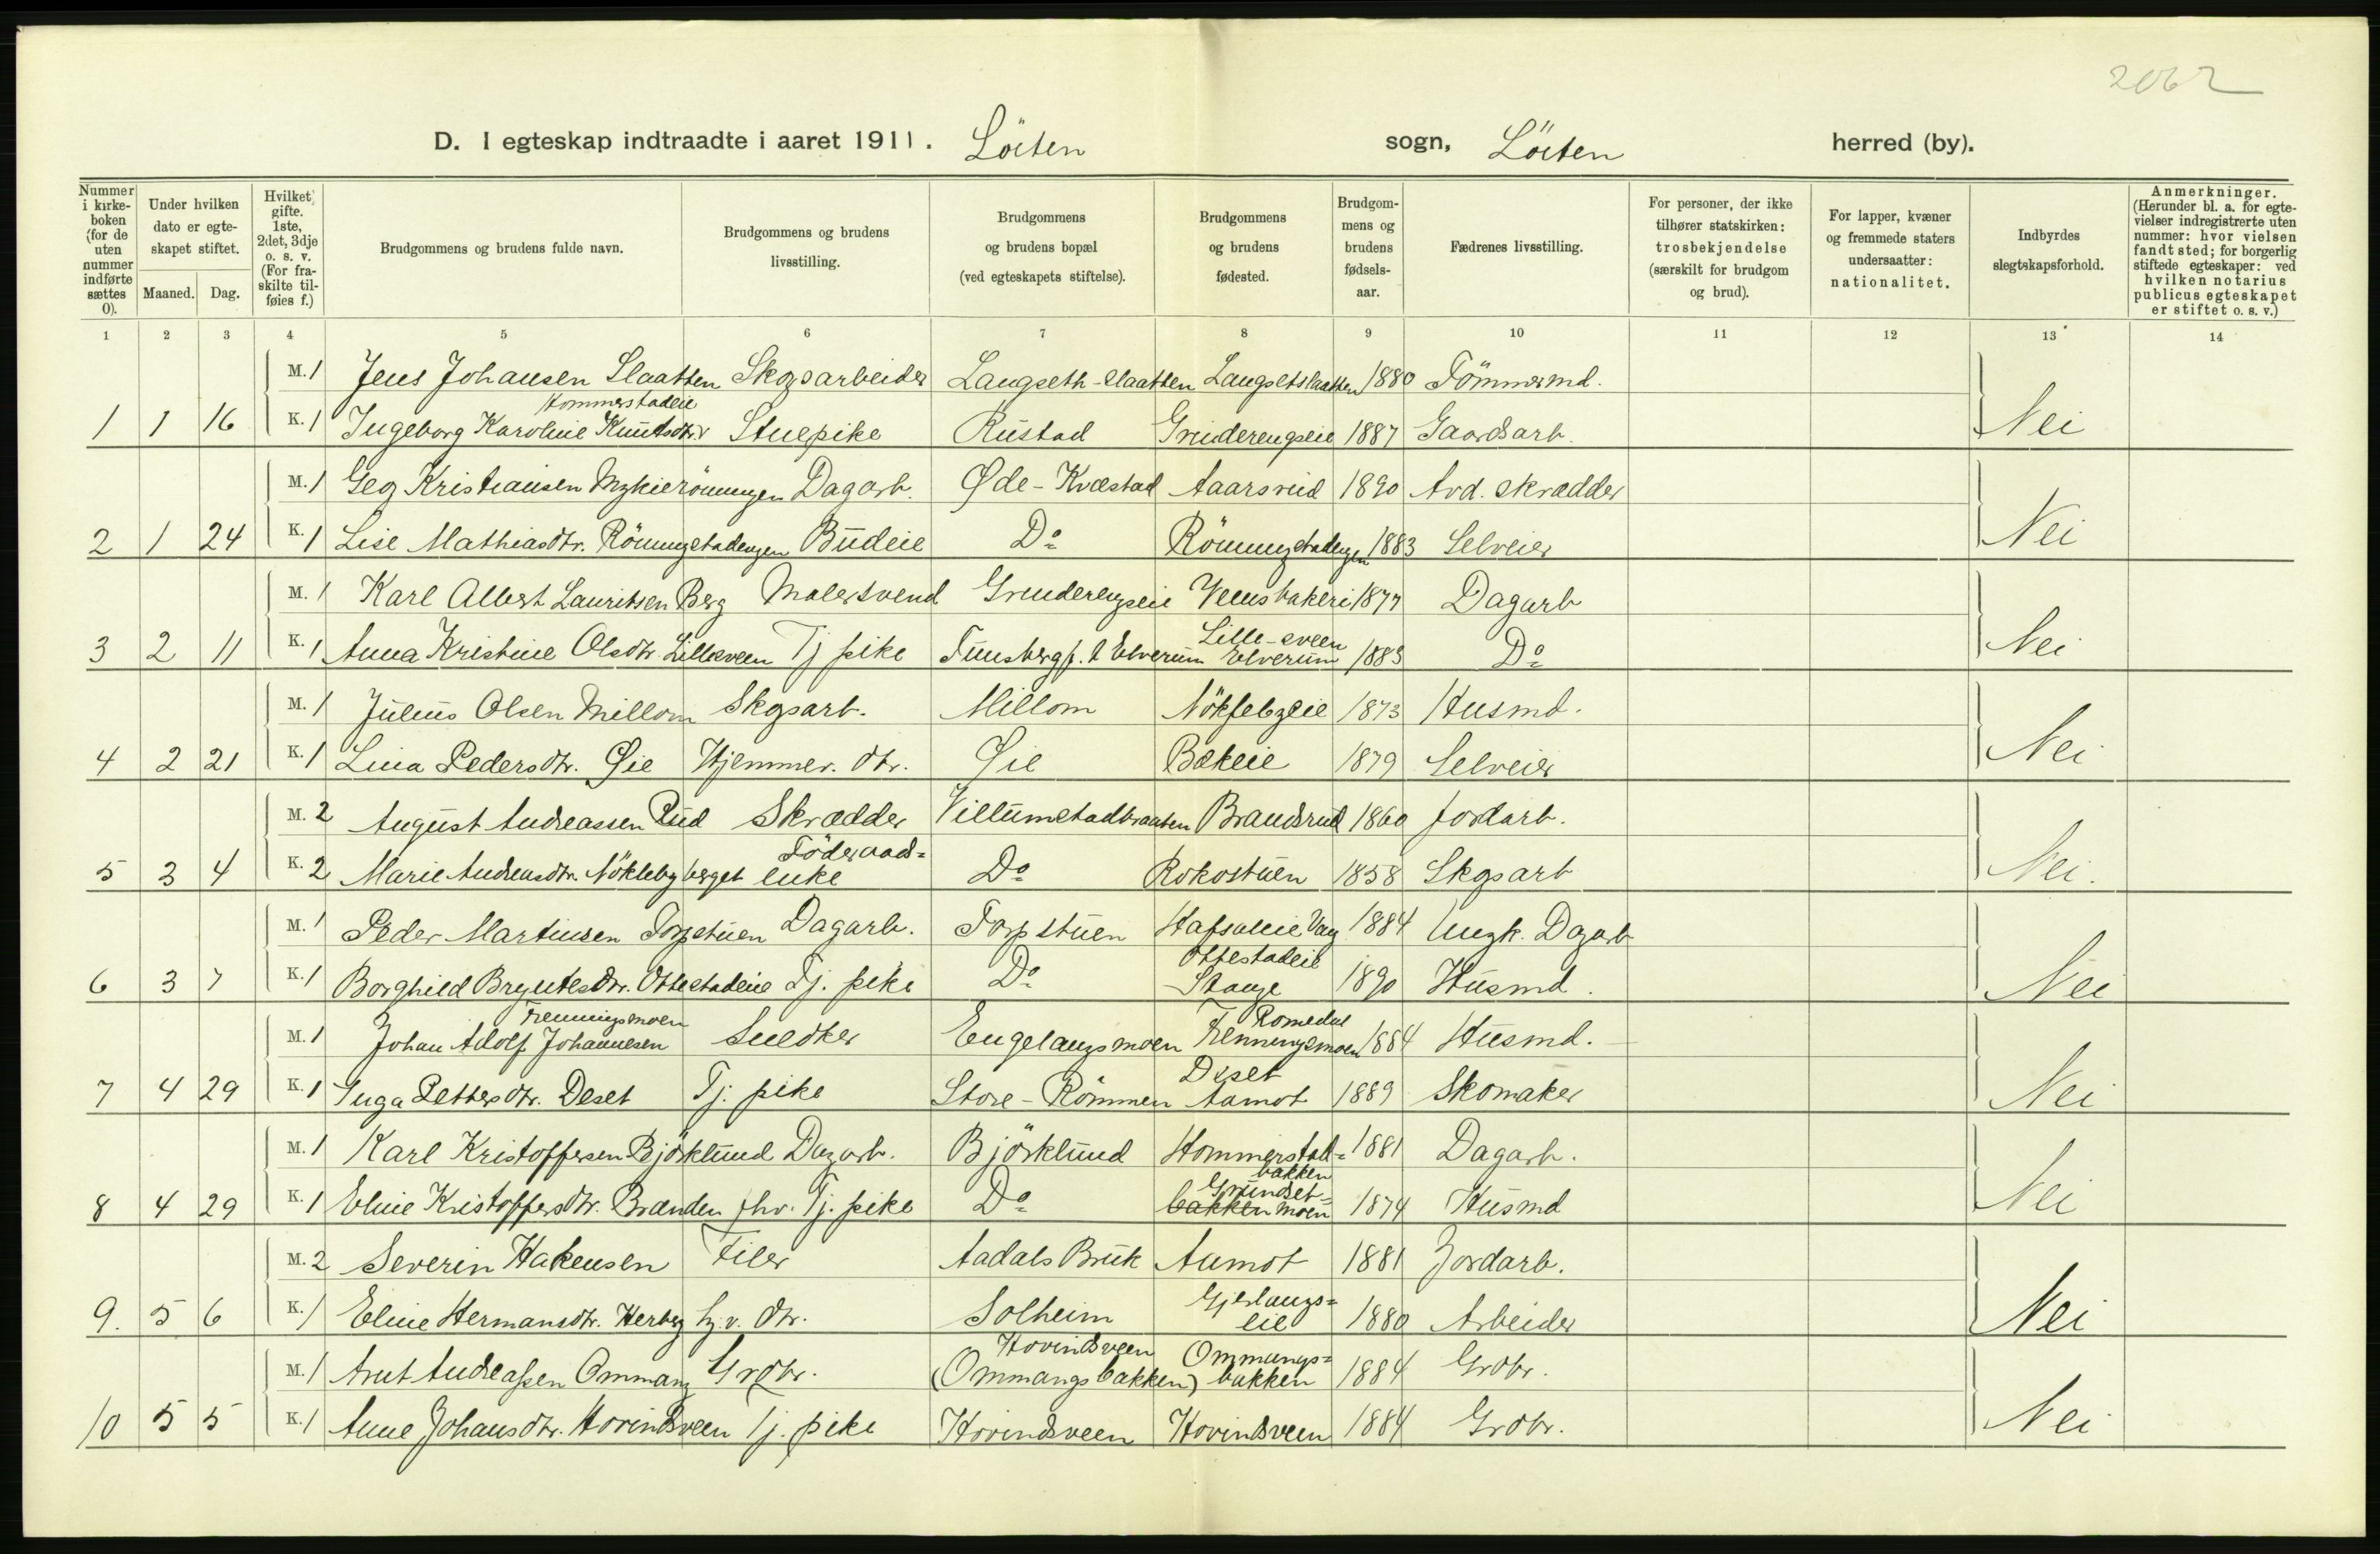 2062
D. I egteskap indtraadte i aaret 1911. Löiten sogn, Löiten herred (by).
Nummer i kirke-boken (for de uten nummer indførte sættes 0).
Under hvilken dato er egte-skapet stiftet.
Maaned. Dag.
Hvilket gifte. 1ste, 2det, 3dje o. s. v. (For fra-skilte til-føies f.)
Brudgommens og brudens fulde navn.
Brudgommens og brudens livsstilling.
Brudgommens og brudens bopæl (ved egteskapets stiftelse).
Brudgommens og brudens fødested.
Brudgom-mens og brudens fødsels-aar.
Fædrenes livsstilling.
For personer, der ikke tilhører statskirken: trosbekjendelse (særskilt for brudgom og brud).
For lapper, kvæner og fremmede staters undersaatter: nationalitet.
Indbyrdes slegtskapsforhold.
Anmerkninger. (Herunder bl. a. for egte-vielser indregistrerte uten nummer: hvor vielsen fandt sted; for borgerlig stiftede egteskaper: ved hvilken notarius publicus egteskapet er stiftet o. s. v.)
1 2 3 4 5 6 7 8 9 10 11 12 13 14
M. 1 Jens Johansen Slaatten Skogsarbeider Langseth-slaatten Langsetslaatten 1880 Tömmermd.
Hommerstadeie
1 1 16 K. 1 Ingeborg Karoline Knutsdtr. Stuepike Rustad Grinderengseie 1887 Gaardsarb. Nei
M. 1 Kristiansen Dagarb. Øde-Kvæstad Aaarsrud 1890 Avd. skrædder
2 1 24 K. 1 Lise Mathiasdtr. Budeie Do 1883 Selveier Nei
M. 1 Karl Albert Lauritsen Berg Malersvend Grinderengseie 1877 Dagarb
Lille-sveen
3 2 11 K. 1 Anna Kristine Olsdtr. Lillesveen Tj pike Tunsberg p. t. Elverum Elverum 1883 Do Nei
M. 1 Julius Olsen Millom Skgsarb. Millom 1873 Husmd.
4 2 21 K. 1 Lina Pedersdtr. Øie Hjemmev. dtr. Øie Bækeie 1879 Selveier Nei
M. 2 August Andreassen Rud Skrædder Villumstadbraaten Brandsrud 1860 Jordarb.
Föderaads=
5 3 4 K. 2 Marie Andreasdtr. Nöklebyberget enke Do Rokostuen 1858 Skgsarb Nei.
M. 1 Peder Martinsen Torpstuen Dagarb. Torpstuen 1884 Ungk. Dagarb
Ottestadeie
6 3 7 K. 1 Borghild Ottestadeie Tj. pike Do Stange 1890 Husmd. Nei
Frenningsmoen Romedal
M. 1 Johan Adolf Johannesen Snedker Engelaugsmoen Frenningsmoen 1884 Husmd.
Deset
7 4 29 K. 1 Inga Pettersdtr. Deset Tj. pike Store-Römmen Aamot 1889 Skomaker Nei
M. 1 Karl Kristoffersen Björklund Dagarb. Björklund Hommerstad= 1881 Dagarb.
bakken
Grundset=
8 4 29 K. 1 Eline Kristoffersdtr. Brænden fhv. Tj. pike Do bakken moen 1874 Husmd Nei
M. 2 Severin Hakensen Filer Aadals Bruk Aamot 1881 Jordarb.
Gjerlaugs=
9. 5 6 K. 1 Eline Hermansdtr. Herberg hj. v. dtr. Solheim eie 1880 Arbeider Nei
Hovindsveen Ommangs=
M. 1 Arnt Andreassen Ommang Grdbr. (Ommangsbakken) bakken 1884 Grdbr.
10 5 5 K. 1 Anne Johansdtr. Hovindsveen Tj. pike Hovindsveen Hovindsveen 1884 Grdbr. Nei